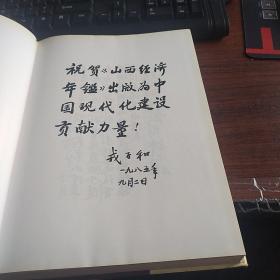 祝贺《山西经济
年鉴》出版为中
国现代化建设
贡献力量!
戎子和
一九八五年
九月二日